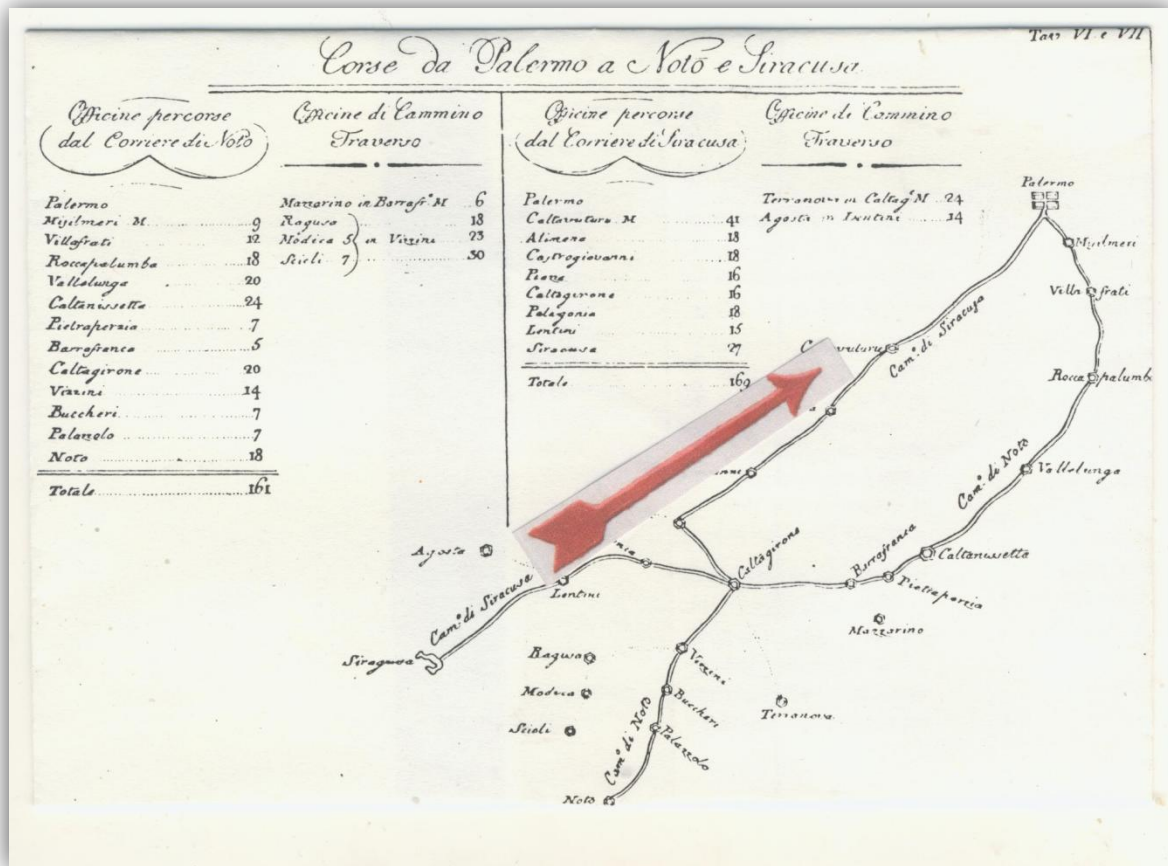 Tav. VI e VII
Corse da Palermo a Noto e Siracusa
Officine percorse
dal Corriere di Noto
Palermo
Misilmeri M. 9
Villafrati 12
Roccapalumba 18
Vallelunga 20
Caltanissetta 24
Pietraperzia 7
Barrafranca 5
Caltagirone 20
Vizzini 14
Buccheri 7
Palazzolo 7
Noto 18
Totale 161
Officine di Cammino
Traverso
Mazzarino in Barrafr.ª M. 6
Ragusa 18
Modica 5 in Vizzini 23
Scicli 7 30
Officine percorse
dal Corriere di Siracusa
Palermo
Caltavuturo M. 41
Alimena 18
Castrogiovanni 18
Piazza 16
Caltagirone 16
Palagonia 18
Lentini 15
Siracusa 27
Totale 169
Officine di Cammino
Traverso
Terranova in Caltag.e M. 24
Agosta in Lentini 14
Palermo
Misilmeri
Villafrati
Cam.º di Siracusa
Roccapalumb
Vallelunga
Cam.º di Noto
Caltanissetta
Barrafranca
Pietraperzia
Mazzarino
Caltagirone
Agosta
Lentini
Cam.º di Siracusa
Siragusa
Ragusa
Vizzini
Modica
Buccheri
Terranova
Scicli
Palazzolo
Cam.º di Noto
Noto